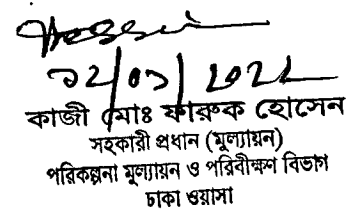 ১২/০১/২০২২
কাজী মোঃ ফারুক হোসেন
সহকারী প্রধান (মূল্যায়ন)
পরিকল্পনা মূল্যায়ন ও পরিবীক্ষণ বিভাগ
ঢাকা ওয়াসা